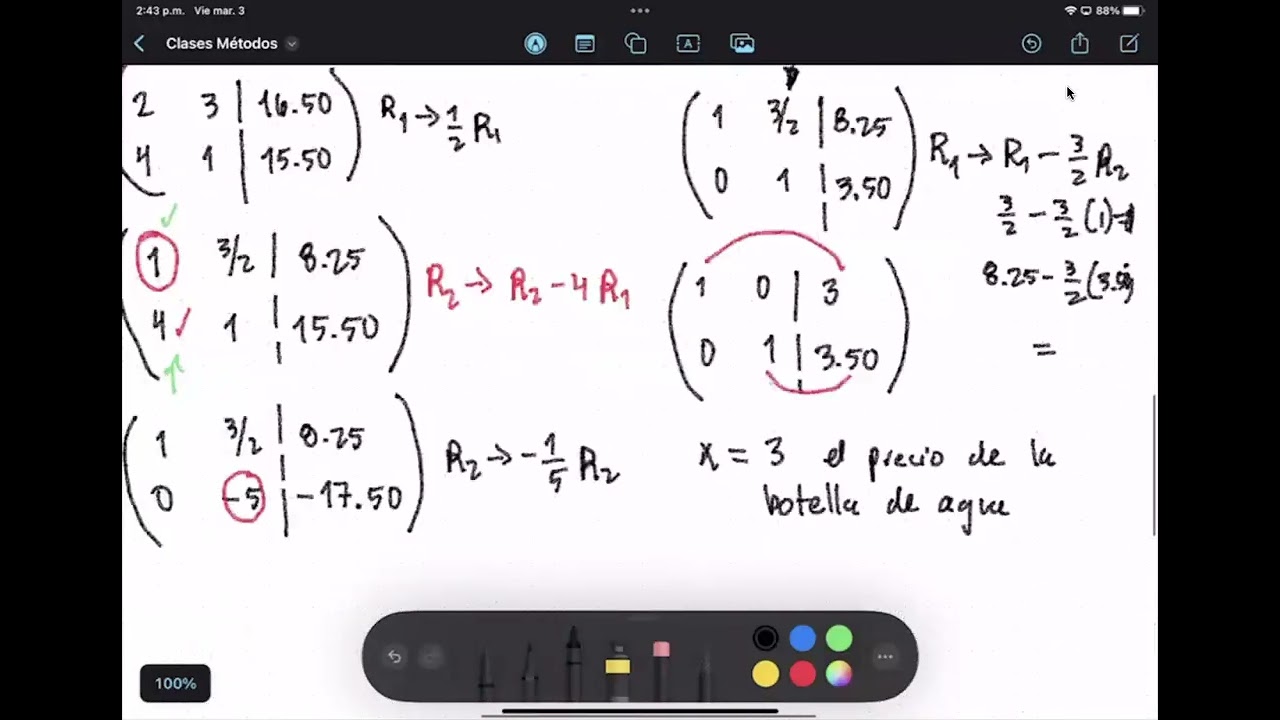 2:43 p.m. Vie mar. 3
88%
Clases Métodos
2 3 | 16.50
4 1 | 15.50
R₁ → 1/2 R₁
1 3/2 | 8.25
4 1 | 15.50
R₂ → R₂ - 4 R₁
1 3/2 | 8.25
0 -5 | -17.50
R₂ → -1/5 R₂
1 3/2 | 8.25
0 1 | 3.50
R₁ → R₁ - 3/2 R₂
3/2 - 3/2 (1)
8.25 - 3/2 (3.50)
=
1 0 | 3
0 1 | 3.50
x = 3 el precio de la
botella de agua
100%